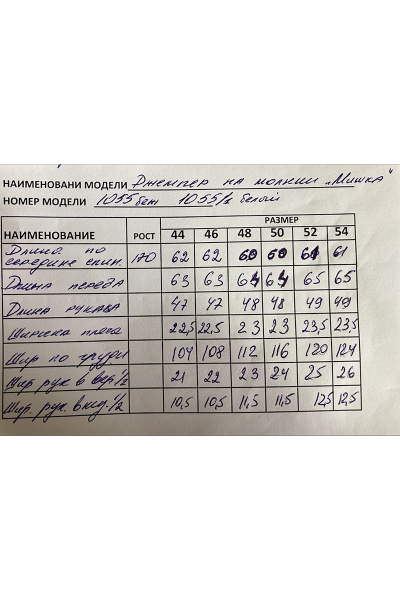 НАИМЕНОВАНИ МОДЕЛИ Джемпер на молнии „Мишка"
НОМЕР МОДЕЛИ 1055 беж 1055/1 белый
РАЗМЕР
НАИМЕНОВАНИЕ РОСТ 44 46 48 50 52 54
Длина по середине спин. 170 62 62 60 60 61 61
Длина переда 63 63 64 64 65 65
Длина рукава 47 47 48 48 49 49
Ширина плеча 22,5 22,5 23 23 23,5 23,5
Шир по груди 104 108 112 116 120 124
Шир рук в вер. 1/2 21 22 23 24 25 26
Шир рук. в низ. 1/2 10,5 10,5 11,5 11,5 12,5 12,5